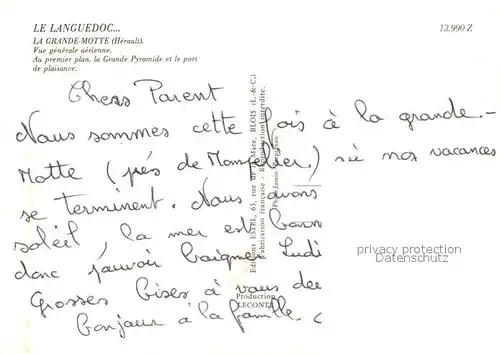 LE LANGUEDOC...
13.990 Z
LA GRANDE-MOTTE (Hérault).
Vue générale aérienne.
Au premier plan, la Grande Pyramide et le port
de plaisance.
Chers Parent
Nous sommes cette fois à la grande-
Motte (près de Montpellier) où nos vacances
se terminent. Nous avons
soleil, la mer est bonn
donc pouvoir baigner Ludi
Grosses bises à vous deu
bonjour à la famille
Editions ESTEL, 63, rue BLOIS (L.-&-C.)
Fabrication française - Reproduction interdite.
Production
LECONTE
privacy protection
Datenschutz